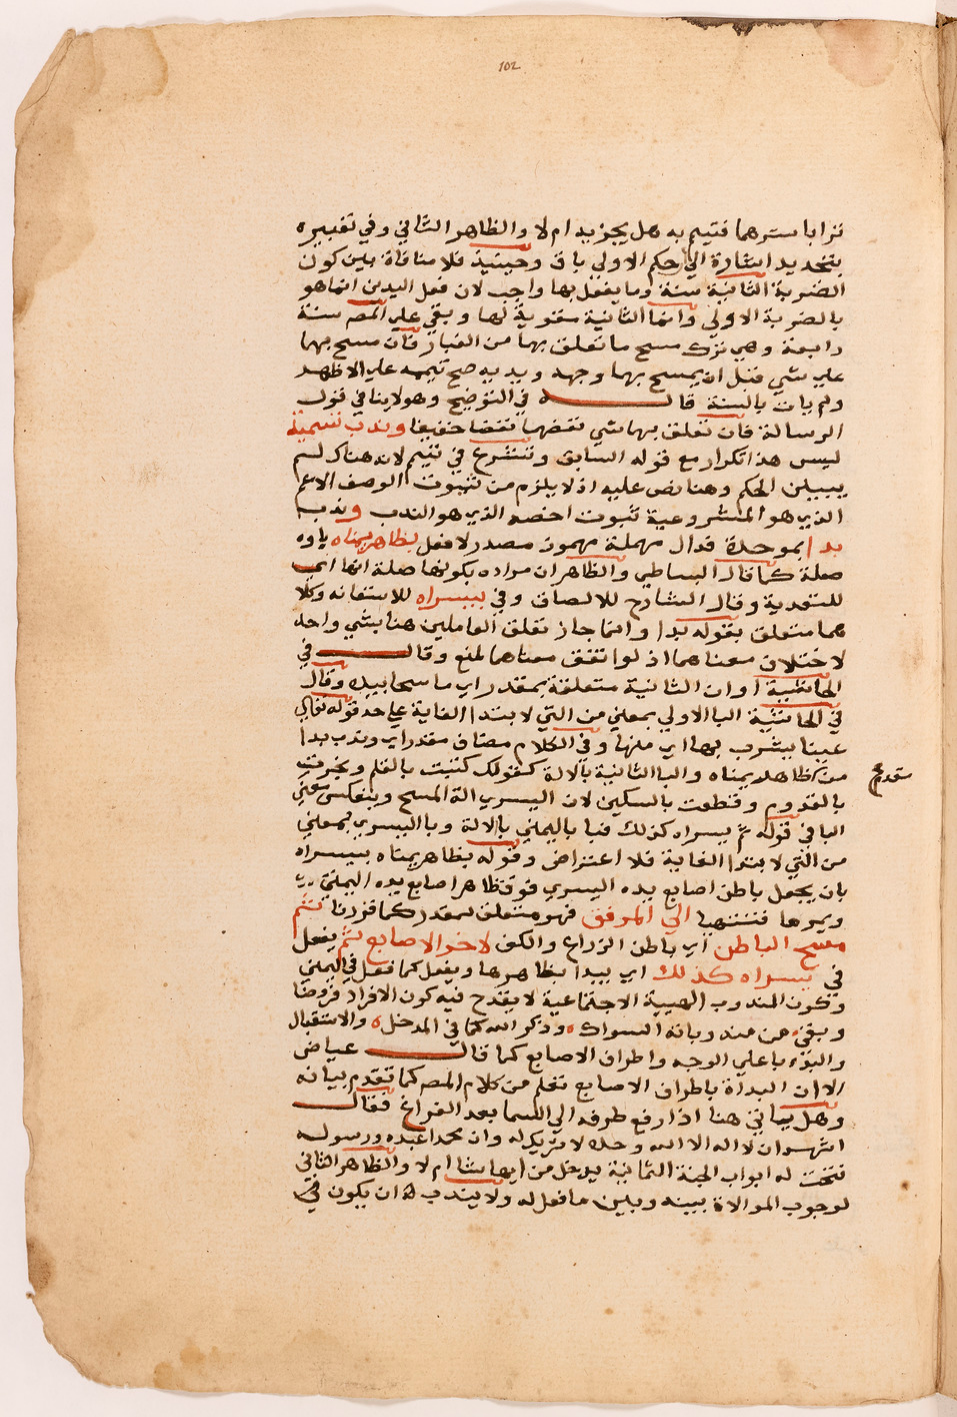 102
ترابا سترهما فتيمم به هل يجزيه ام لا والظاهر الثاني وفي تعبيره
بتجديد اشارة الي حكم الاولي باق وحينيذ فلا منافاة بين كون
الضربة الثانية سنة وما يفعل بها واجب لان فعل اليدين انما هو
بالضربة الاولي وانما الثانية مقوية لها وبقي علي المص سنة
رابعة وهي ترك مسح ما تعلق بهما من الغبار فان مسح بهما
علي شي قبل ان يمسح بهما وجهه ويديه صح تيممه علي الاظهر
ولم يات بالسنة قاله في التوضيح وهو لا ينافي قول
الرسالة فان تعلق بهما شي نفضهما نفضا خفيفا وندب تسمية
ليس هذا تكرار مع قوله السابق وتشرع في تيمم لانه هناك لم
يبين الحكم وهنا نص عليه اذ لا يلزم من ثبوت الوصف الاعم
الذي هو المشروعية ثبوت اخصه الذي هو الندب وندب
بدا بموحدة فدال مهملة مهموز مصدر لا فعل بظاهر يمناه باوه
صلة كما قال البساطي والظاهر ان مراده بكونها صلة انها اي
للتعدية وقال الشارح للالصاق وفي بيسراه للاستعانة وكلا
هما متعلق بقوله بدا وانما جاز تعلق العاملين هنا بشي واحد
لاختلاف معناهما اذ لو اتفق معناهما لمنع وقال في
الحاشية او ان الثانية متعلقة بمقدر اي ماسحا بيده وقال
في الحاشية البا الاولي بمعني من التي لابتدا الغاية علي حد قوله تعالي
عينا يشرب بها اي منها وفي الكلام مضاف مقدر اي وندب بدا
من ظاهر يمناه والبا الثانية بالالة كقولك كتبت بالقلم ونجرت
بالقدوم وقطعت بالسكين لان اليسري الة المسح وينعكس معني
البا في قوله ثم يسراه كذلك فبا باليمني بالالة وبا اليسري بمعني
من التي لابتدا الغاية فلا اعتراض وقوله بظاهر يمناه بيسراه
بان يجعل باطن اصابع يده اليسري فوق ظاهر اصابع يده اليمني
ويمرها فتنتهيا الي المرفق فهو متعلق بمقدر كما قررنا ثم
مسح الباطن اي باطن الذراع والكف لاخر الاصابع ثم يفعل
في يسراه كذلك اي يبدا بظاهرها ويفعل كما فعل في اليمني
وكون المندوب الهيية الاجتماعية لا يقدح فيه كون الافراد فروضا
وبقي من مندوباته السواك وذكر الله كما في المدخل والاستقبال
والبدء باعلي الوجه واطراف الاصابع كما قال عياض
الا ان البداة باطراف الاصابع تعلم من كلام المص كما تقدم بيانه
وهل ياتي هنا اذا رفع طرفه الي السما بعد الفراغ فقال
اشهد ان لا اله الا الله وحده لا شريك له وان محمدا عبده ورسوله
فتحت له ابواب الجنة الثمانية يدخل من ايها شا ام لا والظاهر الثاني
لوجوب الموالاة بينه وبين ما فعل له ولا يندب له ان يكون في